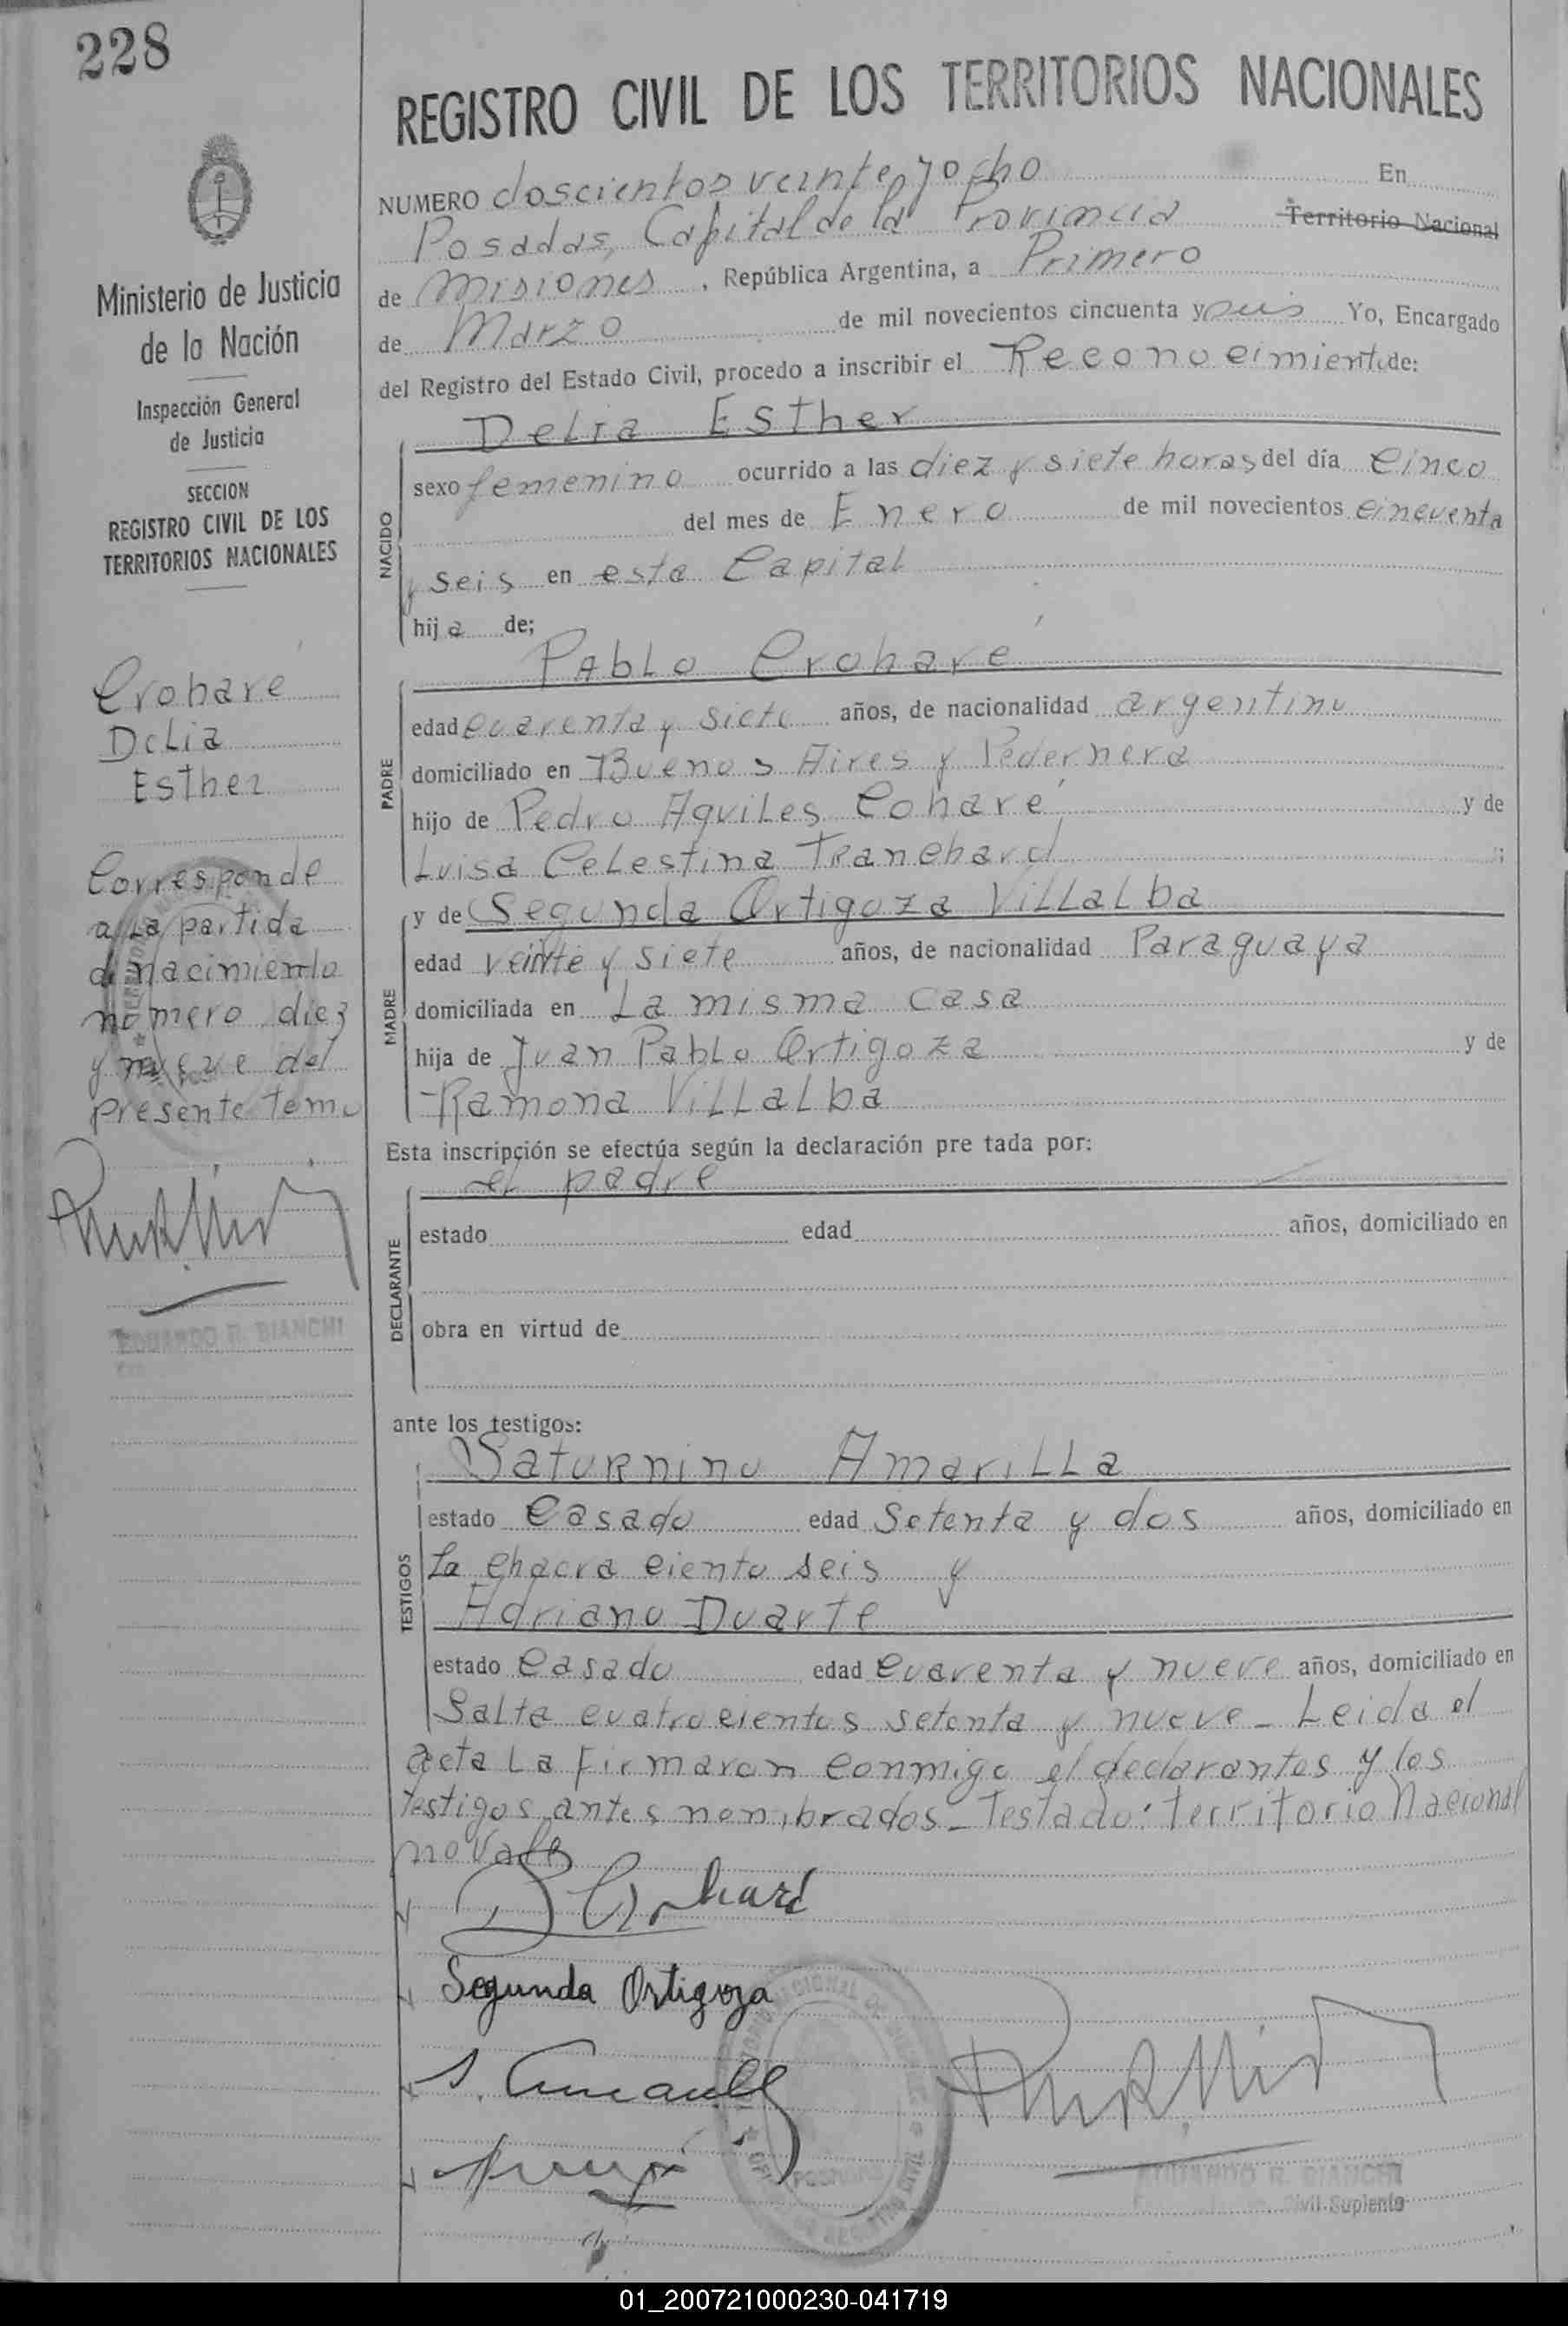 228
REGISTRO CIVIL DE LOS TERRITORIOS NACIONALES
NUMERO doscientos veinte y ocho En
Posadas, Capital de la Provincia Territorio Nacional
de Misiones, República Argentina, a Primero
de Marzo de mil novecientos cincuenta y seis Yo, Encargado
del Registro del Estado Civil, procedo a inscribir el Reconocimiento de:
Ministerio de Justicia
de la Nación
Inspección General
de Justicia
SECCION
REGISTRO CIVIL DE LOS
TERRITORIOS NACIONALES
NACIDO
Delia Esther
sexo femenino ocurrido a las diez y siete horas del día cinco
del mes de Enero de mil novecientos cincuenta
y seis en esta Capital
hija de;
Croharé
Delia
Esther
Corresponde
a la partida
de nacimiento
número diez
y nueve del
presente tomo
EDUARDO R. BIANCHI
PADRE
Pablo Croharé
edad cuarenta y siete años, de nacionalidad argentino
domiciliado en Buenos Aires y Pedernera
hijo de Pedro Aquiles Coharé y de
Luisa Celestina Tranchard ;
MADRE
y de Segunda Ortigoza Villalba
edad veinte y siete años, de nacionalidad Paraguaya
domiciliada en La misma casa
hija de Juan Pablo Ortigoza y de
Ramona Villalba
Esta inscripción se efectúa según la declaración pre tada por:
DECLARANTE
el padre
estado edad años, domiciliado en
obra en virtud de
ante los testigos:
TESTIGOS
Saturnino Amarilla
estado casado edad setenta y dos años, domiciliado en
La chacra ciento seis y
Adriano Duarte
estado casado edad cuarenta y nueve años, domiciliado en
Salta cuatrocientos setenta y nueve - Leida el
acta La Firmaron conmigo el declarantes y los
testigos antes nombrados - Testado: Territorio Nacional
no vale
P Croharé
Segunda Ortigoza
S. Amarilla
EDUARDO R. BIANCHI
Civil Suplente
01_200721000230-041719